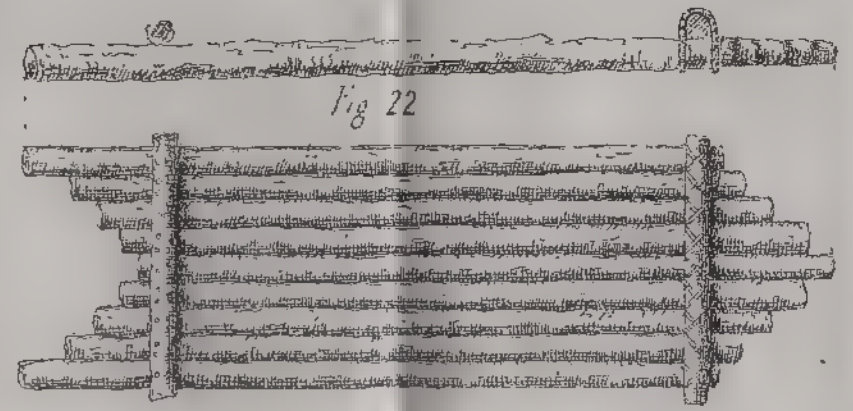 Fig 22